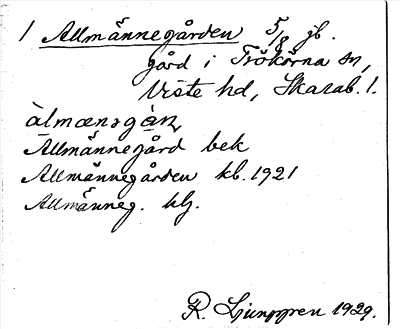 1 Allmännegården 5/8 jb.
gård i Trökörna sn,
Viste hd, Skarab. l.
àlmænsgàn,
Allmännegård bek
Allmännegården kb. 1921
Allmänneg. hlj.
R. Ljunggren 1929.